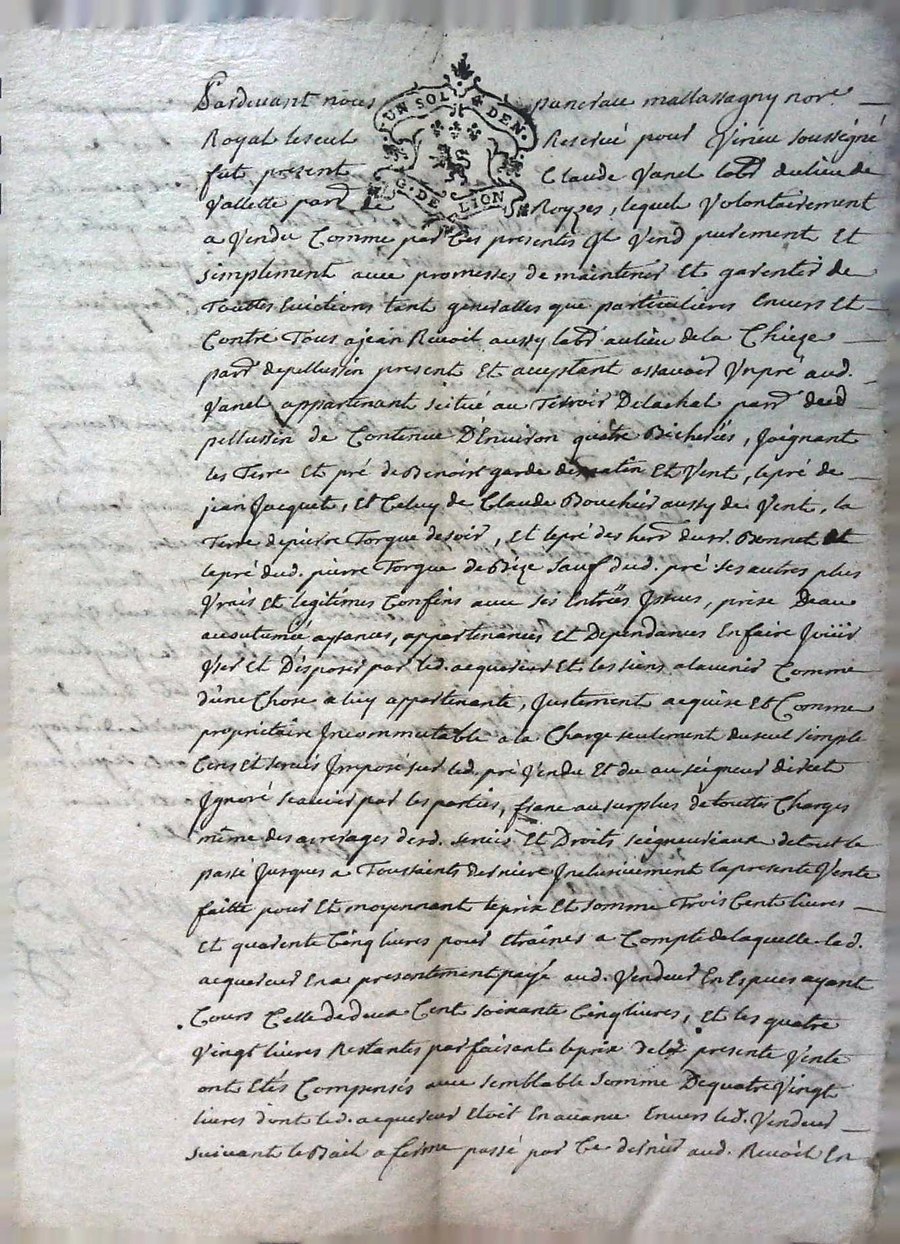 Pardevant nous pancrace mallassagny nore.
UN SOL 4 DEN.
Royal le seul Reservé pour Virieu soussigné
fut present Claude Vanel labr. du lieu de
G. DE LION
Vallette parr. de St. Royzes, lequel Volontairement
a Vendu Comme par Ces presentes Il Vend purement Et
simplement avec promesses de maintenir Et garentir de
Touttes Evictions tant generalles que particulieres Envers Et
Contre Tous a jean Revoil aussy labr. au lieu de la Chieze
parr. de pellussin present Et acceptant assavoir Un pré aud.
Vanel appartenant scitué au Terroir De lachal parr. dud.
pellussin de Contenue D'Environ quatre Bicherées, Joignant
les Terre Et pré de Benoit garde de matin Et Vent, le pré de
jean Jacquet, Et Celuy de Claude Bouchier aussy de Vent, la
Terre de pierre Torgue de soir, Et le pré des her. du sr. Bonnet Et
le pré dud. pierre Torgue de Bize sauf dud. pré ses autres plus
Vrais Et legitimes Confins avec ses Entrées Issues, prise D'eau
accoutumée aysances, appartenances Et Dependances En faire Joüir
User Et Disposer par led. acquereur Et les siens a l'avenir Comme
d'une Chose a luy appartenante, Justement acquise Et Comme
propriétaire Incommutable a la Charge seulement du seul simple
Cens Et servis Imposé sur led. pré Vendu Et du au seigneur direct
Ignoré scavoir par les parties, franc au surplus de touttes Charges
même des arrerages desd. servis Et Droits seigneuriaux de tout le
passé Jusques a Toussaints derniere Inclusivement la presente Vente
faitte pour Et moyennant le prix Et somme Trois Cent livres
Et quarente Cinq livres pour Etraines a Compte de laquelle led.
acquereur En a presentement payé aud. Vendeur En Espèces ayant
Cours Celle de deux Cent soixante Cinq livres, Et les quatre
Vingt livres Restantes parfaisante le prix de la presente Vente
ont Etés Compensés avec semblable somme De quatre Vingt
livres dont led. acquereur Etoit En avance Envers led. Vendeur
suivant le Bail a ferme passé par Ce dernier aud. Revoil En